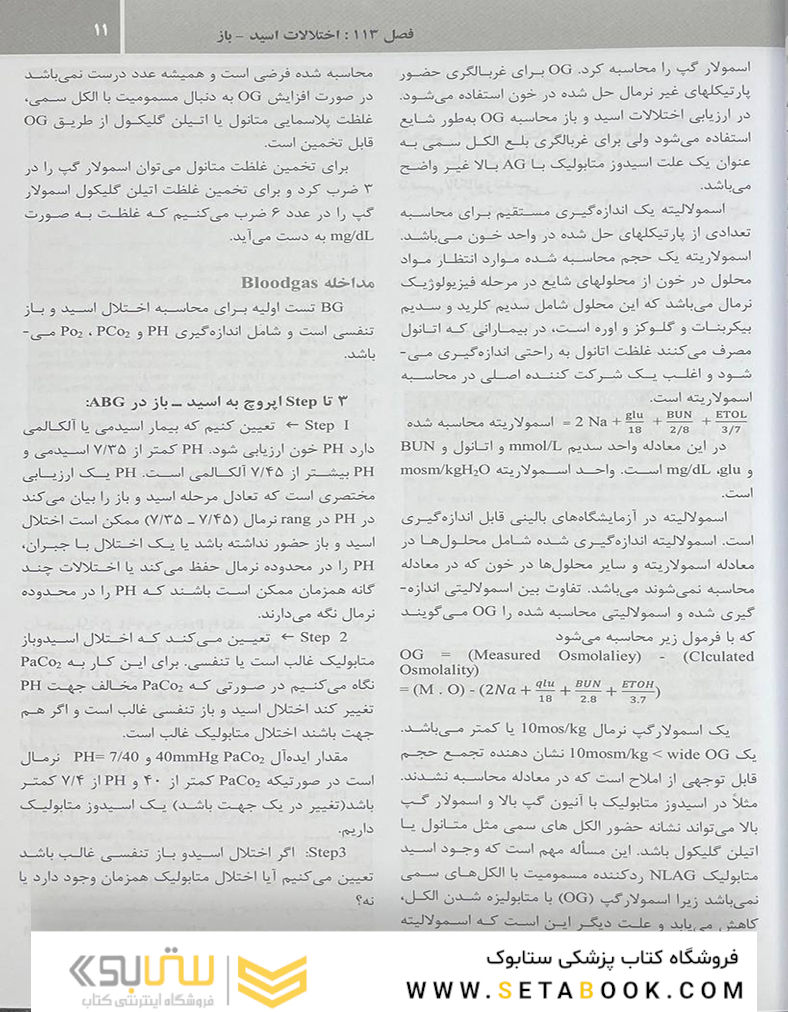 فصل ۱۱۳ : اختلالات اسید – باز
۱۱
اسمولار گپ را محاسبه کرد. OG برای غربالگری حضور
پارتیکلهای غیر نرمال حل شده در خون استفاده می‌شود.
در ارزیابی اختلالات اسید و باز محاسبه OG به‌طور شایع
استفاده می‌شود ولی برای غربالگری بلع الکل سمی به
عنوان یک علت اسیدوز متابولیک با AG بالا غیر واضح
می‌باشد.
اسمولالیته یک اندازه‌گیری مستقیم برای محاسبه
تعدادی از پارتیکلهای حل شده در واحد خون می‌باشد.
اسمولاریته یک حجم محاسبه شده موارد انتظار مواد
محلول در خون از محلولهای شایع در مرحله فیزیولوژیک
نرمال می‌باشد که این محلول شامل سدیم کلرید و سدیم
بیکربنات و گلوکز و اوره است، در بیمارانی که اتانول
مصرف می‌کنند غلظت اتانول به راحتی اندازه‌گیری می-
شود و اغلب یک شرکت کننده اصلی در محاسبه
اسمولاریته است.
اسمولاریته محاسبه شده = 2 Na + glu/18 + BUN/2/8 + ETOL/3/7
در این معادله واحد سدیم mmol/L و اتانول و BUN
و glu، mg/dL است. واحد اسمولاریته mosm/kgH₂O
است.
اسمولالیته در آزمایشگاه‌های بالینی قابل اندازه‌گیری
است. اسمولالیته اندازه‌گیری شده شامل محلول‌ها در
معادله اسمولاریته و سایر محلول‌ها در خون که در معادله
محاسبه نمی‌شوند می‌باشد. تفاوت بین اسمولالیتی اندازه-
گیری شده و اسمولالیتی محاسبه شده را OG می‌گویند
که با فرمول زیر محاسبه می‌شود
OG = (Measured Osmolaliey) - (Clculated
Osmolality)
= (M . O) - (2Na + qlu/18 + BUN/2.8 + ETOH/3.7)
یک اسمولارگپ نرمال 10mos/kg یا کمتر می‌باشد.
یک 10mosm/kg < wide OG نشان دهنده تجمع حجم
قابل توجهی از املاح است که در معادله محاسبه نشدند.
مثلاً در اسیدوز متابولیک با آنیون گپ بالا و اسمولار گپ
بالا می‌تواند نشانه حضور الکل های سمی مثل متانول یا
اتیلن گلیکول باشد. این مسأله مهم است که وجود اسید
متابولیک NLAG ردکننده مسمومیت با الکل‌های سمی
نمی‌باشد زیرا اسمولارگپ (OG) با متابولیزه شدن الکل،
کاهش می‌یابد و علت دیگر این است که اسمولالیته
محاسبه شده فرضی است و همیشه عدد درست نمی‌باشد
در صورت افزایش OG به دنبال مسمومیت با الکل سمی،
غلظت پلاسمایی متانول یا اتیلن گلیکول از طریق OG
قابل تخمین است.
برای تخمین غلظت متانول می‌توان اسمولار گپ را در
۳ ضرب کرد و برای تخمین غلظت اتیلن گلیکول اسمولار
گپ را در عدد ۶ ضرب می‌کنیم که غلظت به صورت
mg/dL به دست می‌آید.
مداخله Bloodgas
BG تست اولیه برای محاسبه اختلال اسید و باز
تنفسی است و شامل اندازه‌گیری PH و PCo₂ ، Po₂ می-
باشد.
۳ تا Step اپروچ به اسید – باز در ABG:
Step 1 ← تعیین کنیم که بیمار اسیدمی یا آلکالمی
دارد PH خون ارزیابی شود. PH کمتر از ۷/۳۵ اسیدمی و
PH بیشتر از ۷/۴۵ آلکالمی است. PH یک ارزیابی
مختصری است که تعادل مرحله اسید و باز را بیان می‌کند
در PH در rang نرمال (۷/۴۵ – ۷/۳۵) ممکن است اختلال
اسید و باز حضور نداشته باشد یا یک اختلال با جبران،
PH را در محدوده نرمال حفظ می‌کند یا اختلالات چند
گانه همزمان ممکن است باشند که PH را در محدوده
نرمال نگه می‌دارند.
Step 2 ← تعیین می‌کند که اختلال اسیدوباز
متابولیک غالب است یا تنفسی. برای این کار به PaCo₂
نگاه می‌کنیم در صورتی که PaCo₂ مخالف جهت PH
تغییر کند اختلال اسید و باز تنفسی غالب است و اگر هم
جهت باشند اختلال متابولیک غالب است.
مقدار ایده‌آل 40mmHg PaCo₂ و PH= 7/40 نرمال
است در صورتیکه PaCo₂ کمتر از ۴۰ و PH از ۷/۴ کمتر
باشد(تغییر در یک جهت باشد) یک اسیدوز متابولیک
داریم.
Step3: اگر اختلال اسیدو باز تنفسی غالب باشد
تعیین می‌کنیم آیا اختلال متابولیک همزمان وجود دارد یا
نه؟
فروشگاه کتاب پزشکی ستابوک
WWW.SETABOOK.COM
ستابوک
فروشگاه اینترنتی کتاب